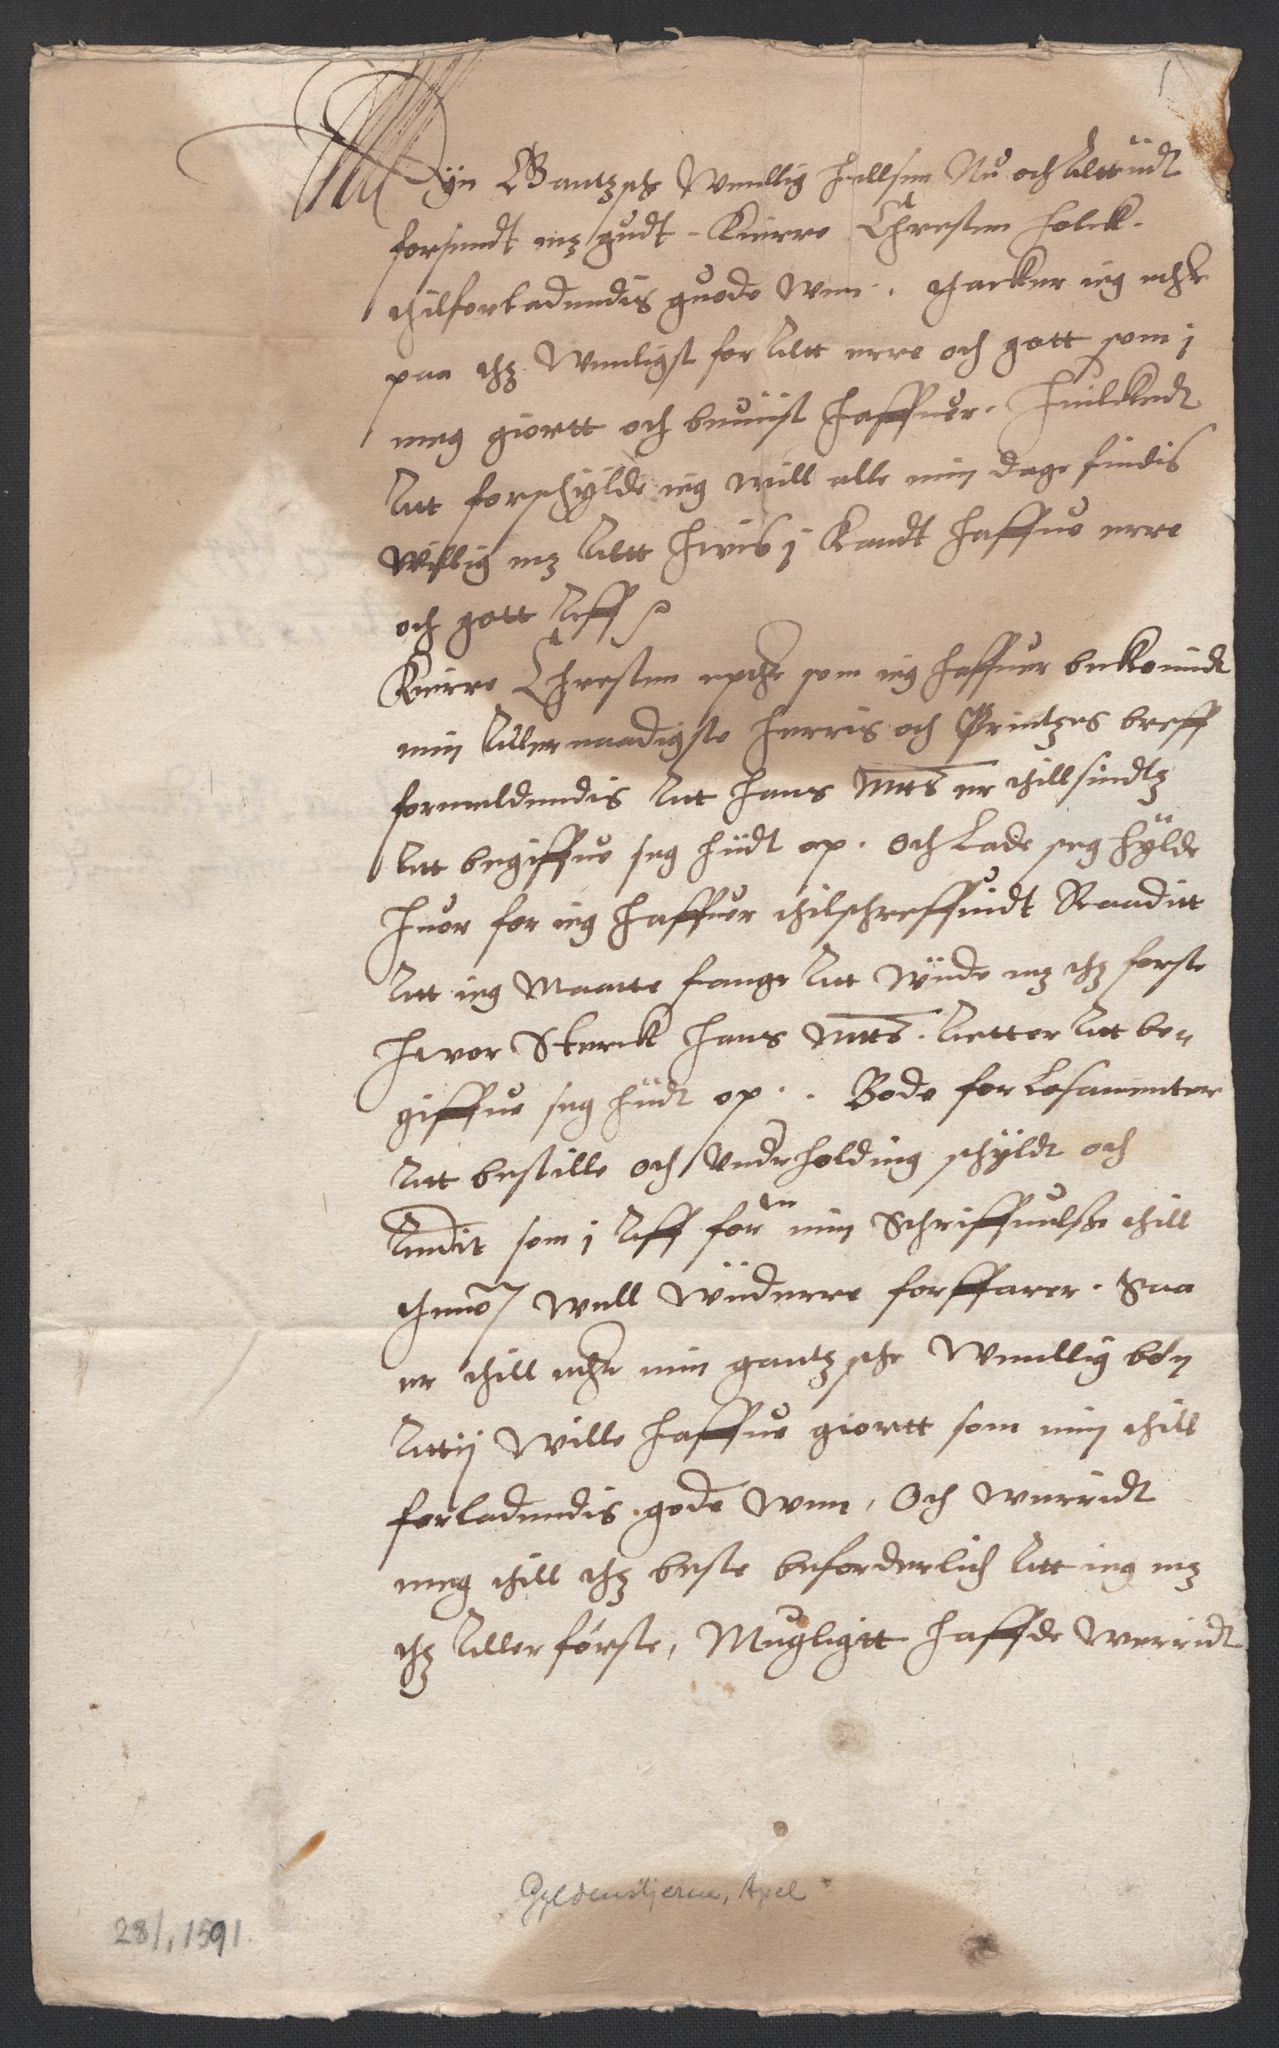 1
Myn Gantzsche Wenllig hellsen Nu och Altiidt
forsendt mz gudt. Kierre Chresten holck.
thilforladendis guode Wen. thacker ieg ether
paa thz Wenligst for Altt erre och gott som i
meg giortt och beuiist haffuer. Huilckedt
Att forschylde ieg will alle min dage findis
Willig mz Altt hwis i Kandt haffue erre
och gott Aff
Kierre Chresten epther som ieg haffuer bekomidt
min Allernaadigste herris och Printzes breff
formeldendis Att hans Mtts er thillsindtz
Att begiffue seg hiidt op. och Lade seg hylde
huor for ieg haffuer thilschreffuidt Raaditt
Att ieg Maatte fange Att Wiide mz thz første
hwor Sterck hans Mtts. Acter Att be-
giffue seg hiidt op. Bode for Losamenter
Att bestille och Underholding schyldt och
Andit som i Aff for min Schriffuelsse thill
thennom Well Wiiderre forffarer. Saa
er thill ether min gantzsche Wenllig bøn
Att ij Wille haffue giortt som min thill
forladendis gode Wen, Och Werridt
meg thill thz beste beforderlich Att ieg mz
thz Aller første, Mugligtt haffde Werridt
Gyldenstjerne, Axel
28/1 1591.